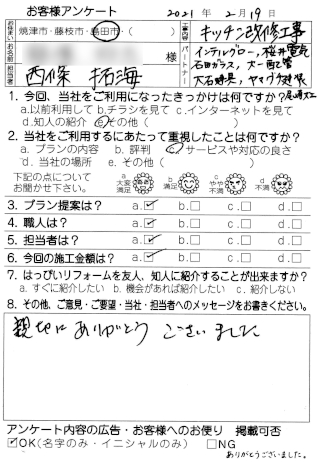 お客様アンケート
2021年 2月 19日
お住まい 焼津市・藤枝市・島田市・( )
工事内容 キッチン改修工事
お名前 様
パートナー インテルグロー, 桜井電気
石田ガラス, 大一配管
大石建長, ヤマウチ建装
尾崎大工
担当者 西條 拓海
1. 今回、当社をご利用になったきっかけは何ですか?
a.以前利用して b.チラシを見て c.インターネットを見て
d.知人の紹介 e.その他( )
2. 当社をご利用するにあたって重視したことは何ですか?
a. プランの内容 b. 評判 c.サービスや対応の良さ
d. 当社の場所 e. その他( )
下記の点について
お聞かせ下さい。
a 大変満足 b 満足 c やや不満 d 不満
3. プラン提案は? a.☑ b.□ c.□ d.□
4. 職人は? a.☑ b.□ c.□ d.□
5. 担当者は? a.☑ b.□ c.□ d.□
6. 今回の施工金額は? a.☑ b.□ c.□ d.□
7. はっぴいリフォームを友人、知人に紹介することが出来ますか?
a. すぐに紹介したい b. 機会があれば紹介したい c. 紹介しない
8. その他、ご意見・ご要望・当社・担当者へのメッセージをお書きください。
親切に ありがとう ございました
アンケート内容の広告・お客様へのお便り 掲載可否
☑OK(名字のみ・イニシャルのみ) □NG
ありがとうございました。